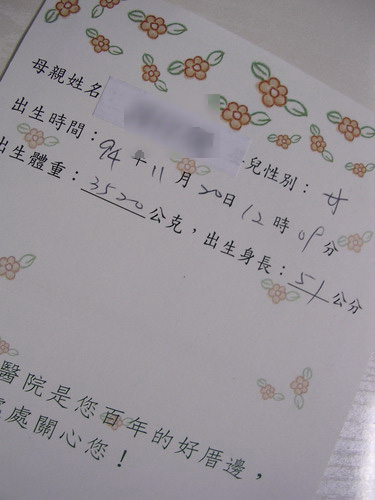 母親姓名
兒性別：女
出生時間：94年11月20日12時09分
出生體重：3520公克，出生身長：51公分
醫院是您百年的好厝邊，
處處關心您！